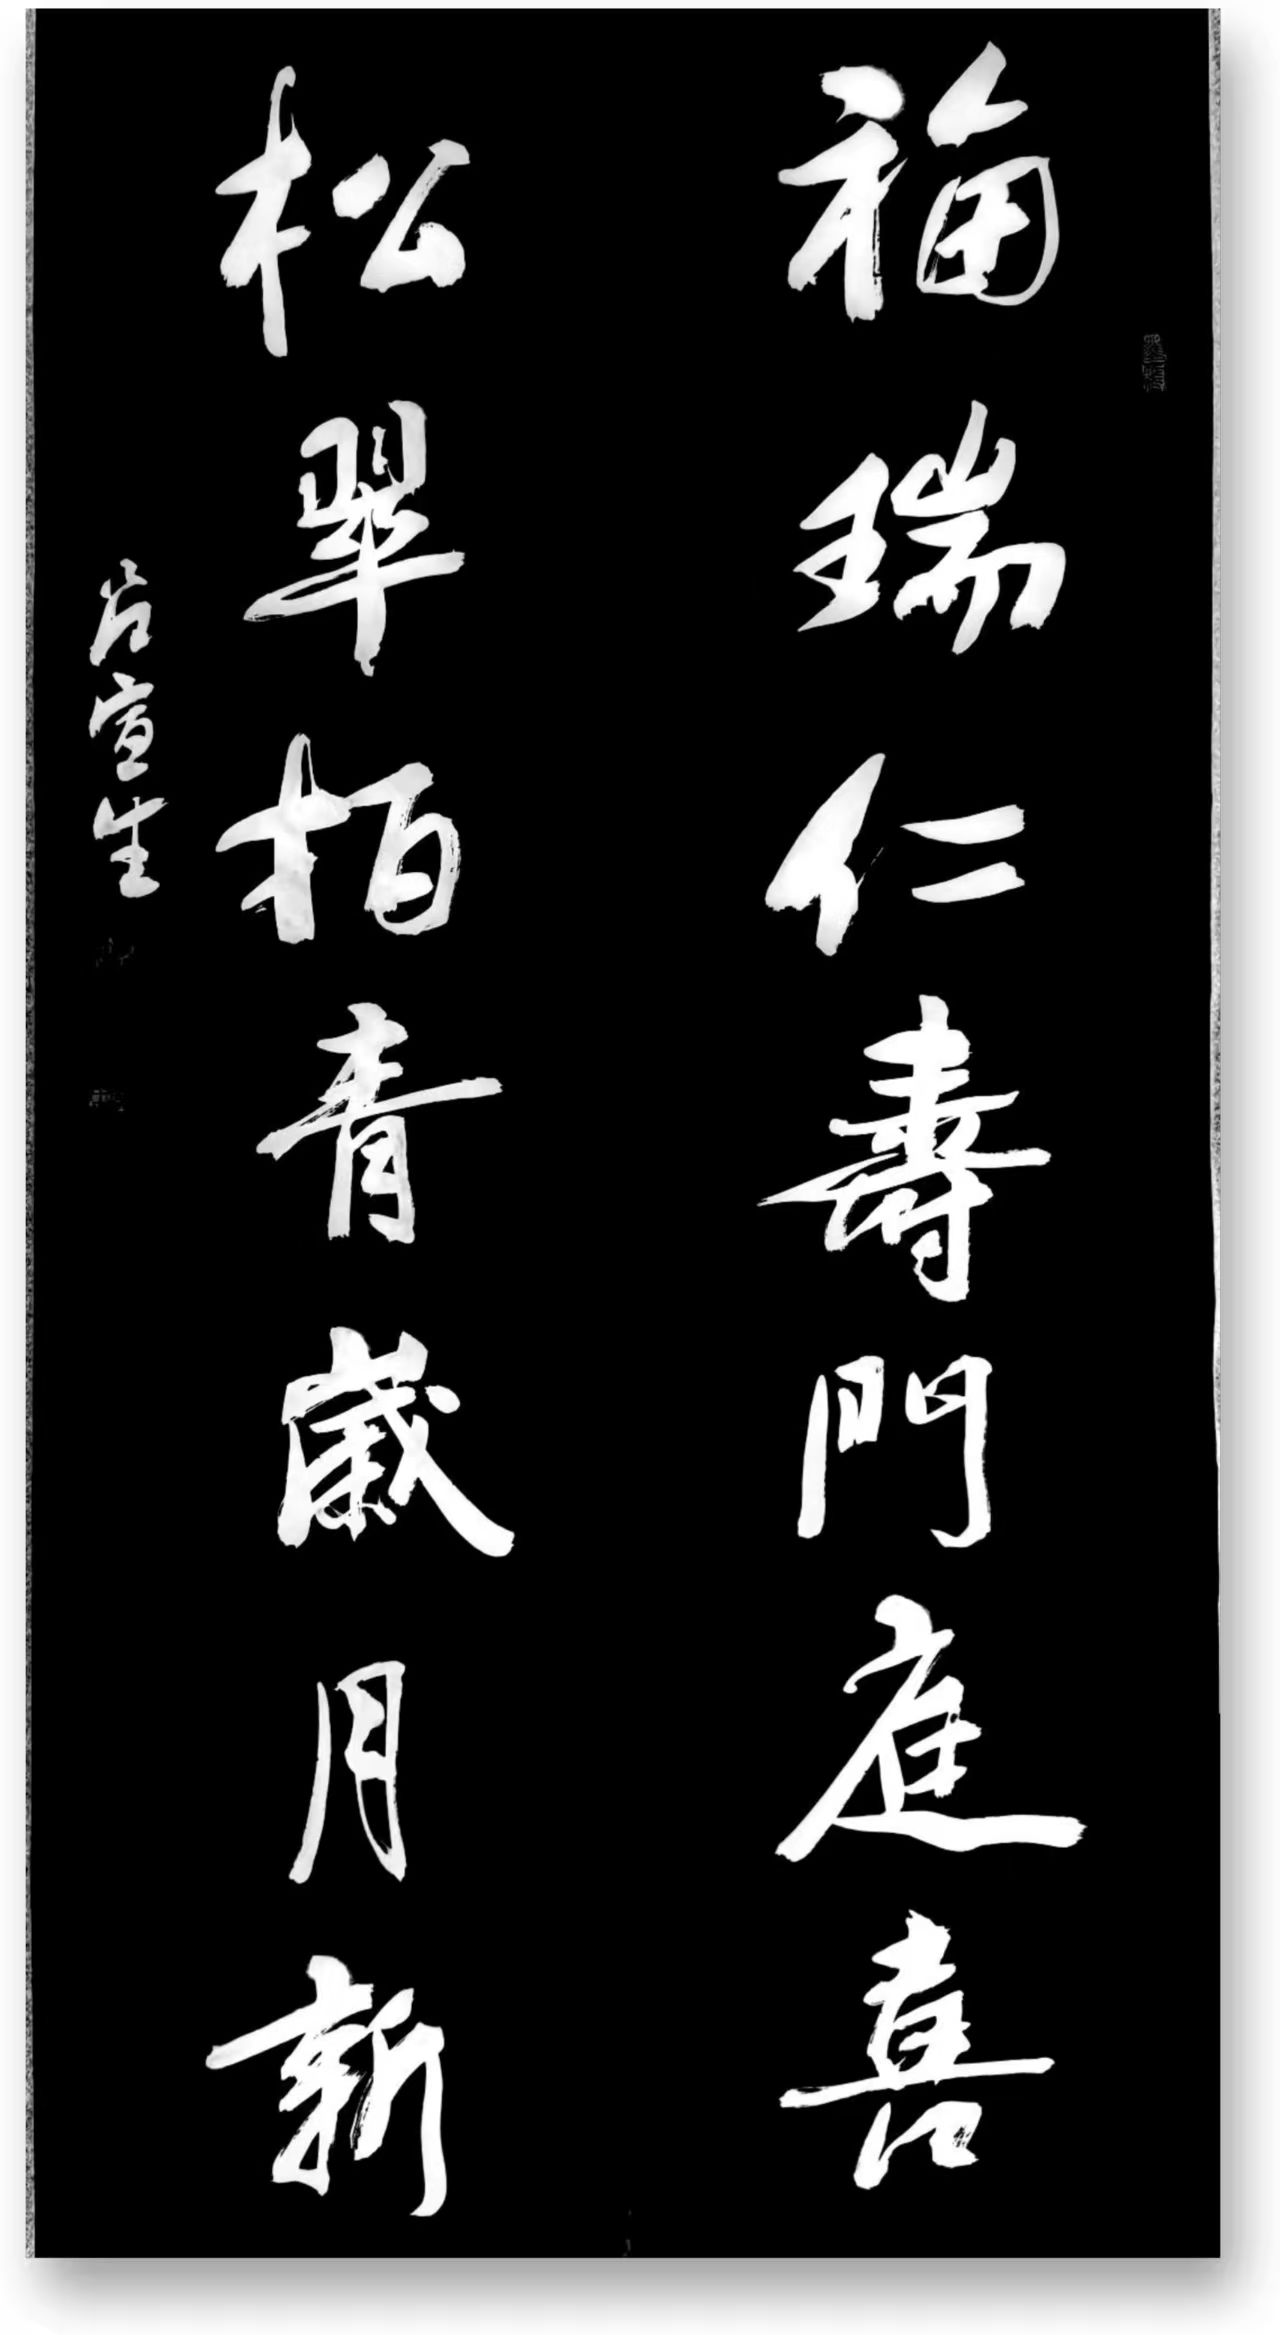 福瑞仁壽門庭喜
松翠柏青歲月新
宣生